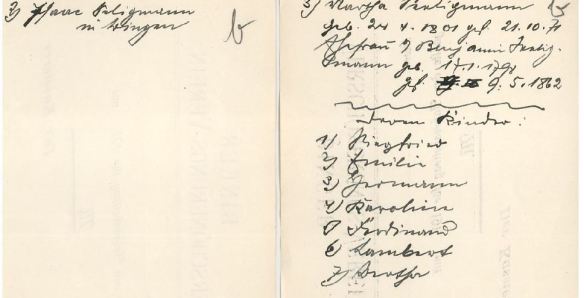 3) Isaac Seligmann
in Usingen
b
3) Martha Seeligmann
geb. 24 4. 1801 gest. 21.10.71
Ehefrau v Benjamin Seelig-
mann geb. 17.1.179
gest. 9.5.1862
Deren Kinder:
1) Siegfried
2) Emilie
3) Hermann
4) Karoline
5) Ferdinand
6) Lambert
7) Bertha